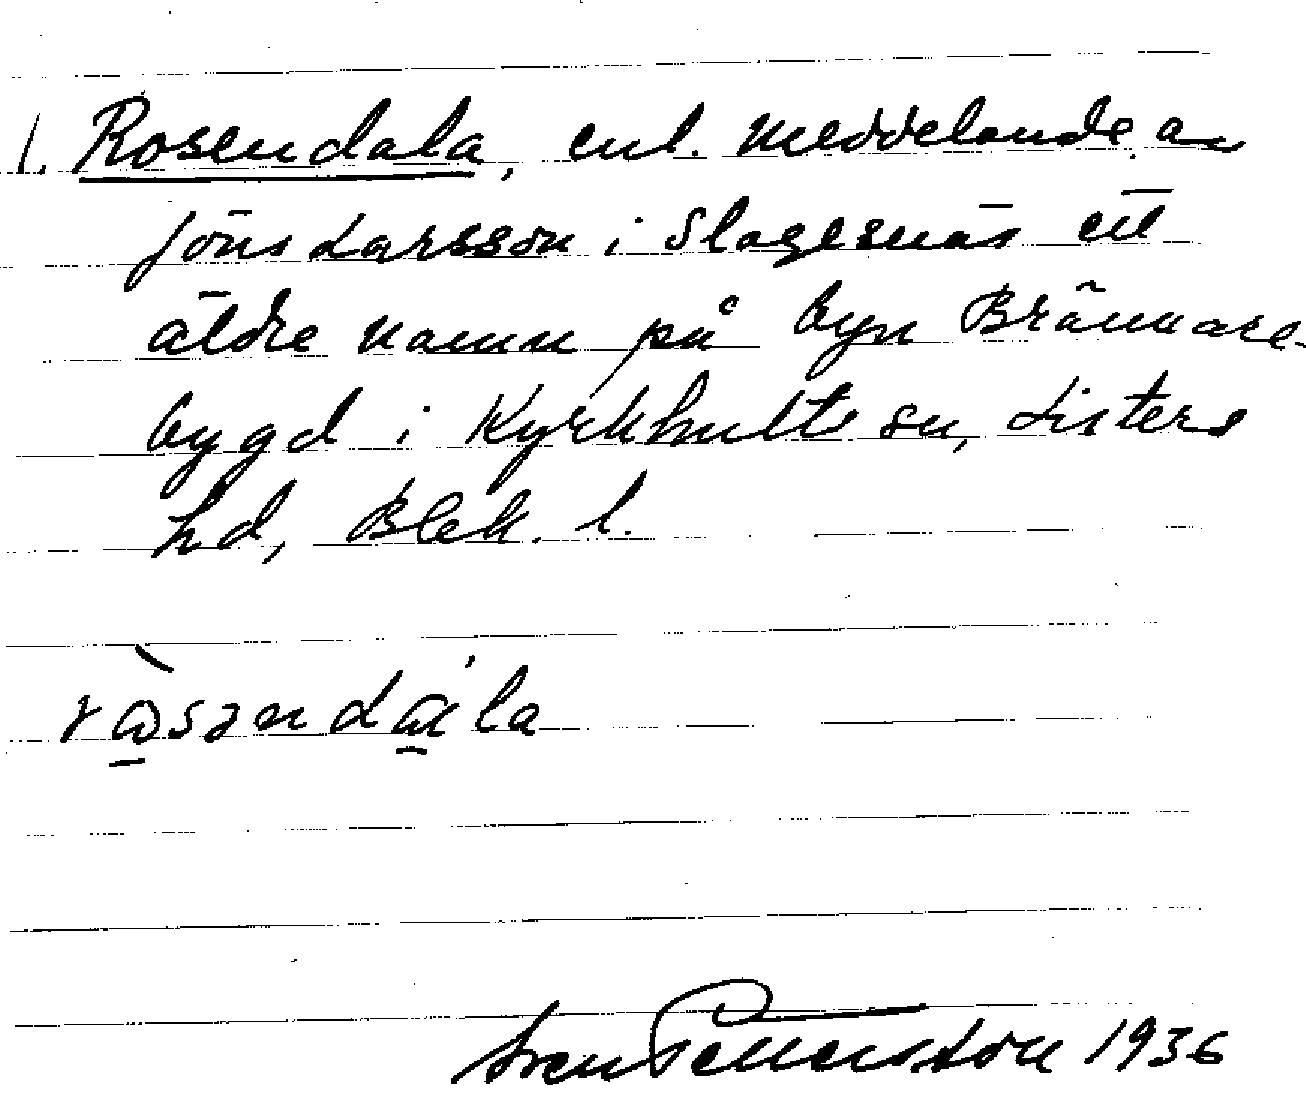 1. Rosendala, enl. meddelande av
Jöns Larsson i Slagesnäs ett
äldre namn på byn Brännare-
bygd i Kyrkhults sn, Listers
hd, Blek. l.
Sven Petterson 1936